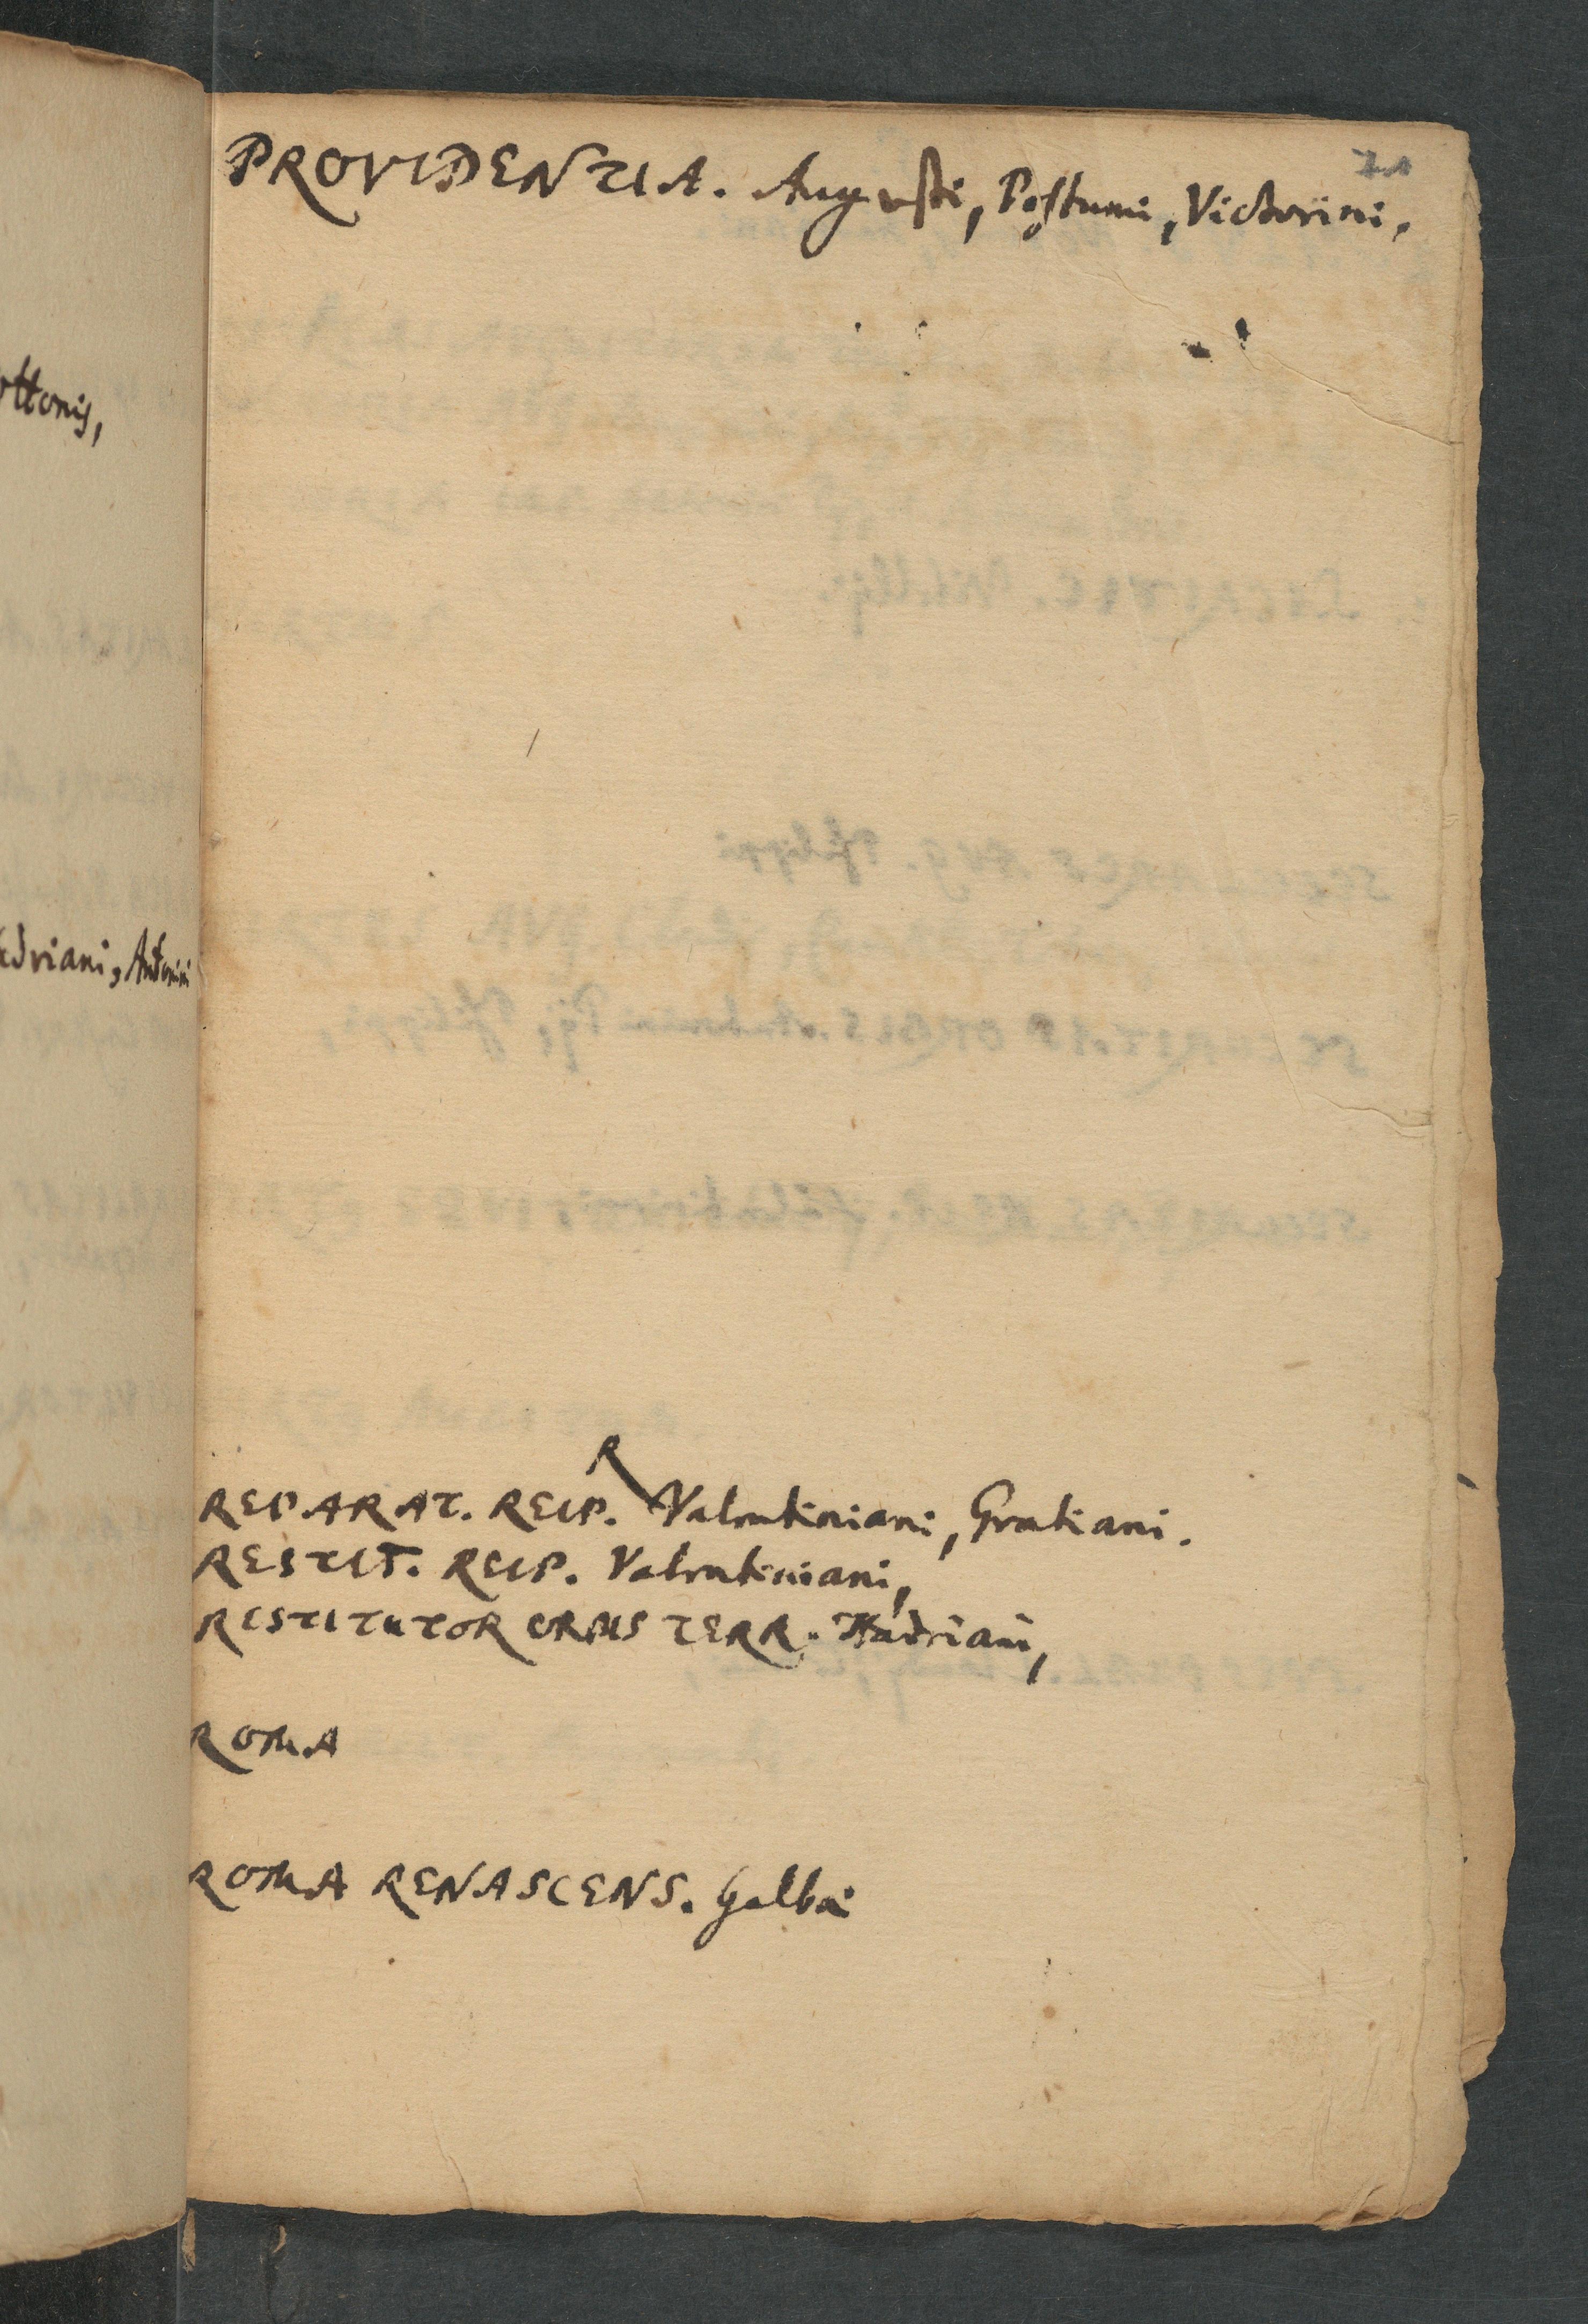 ottonis,
adriani, Antonini
71
PROVIDENTIA. Augusti, Postumi, Victorini.
R
REPARAT. REIP. Valentiniani, Gratiani.
RESTIT. REIP. Valentiniani,
RESTITUTOR ORBIS TERR. Hadriani,
ROMA
ROMA RENASCENS. Galbæ